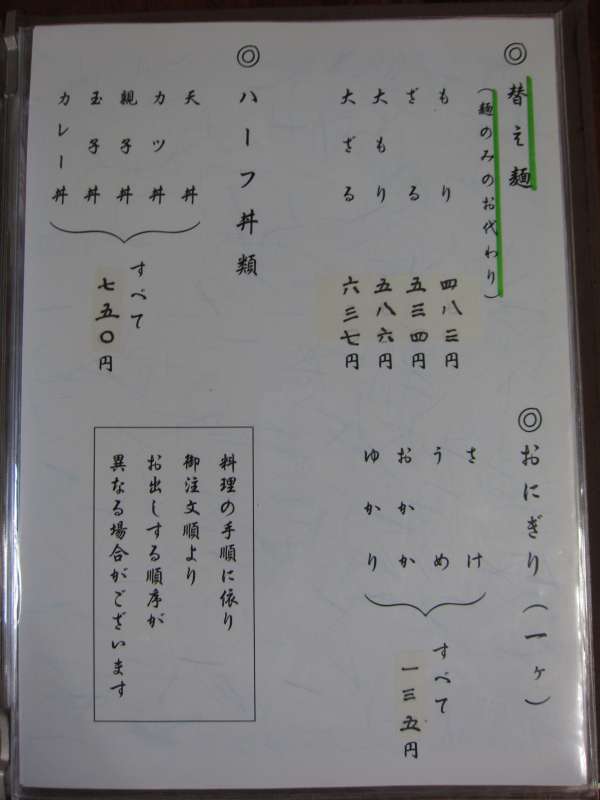 ◎替え麺
（麺のみのお代わり）
もり 四八三円
ざる 五三四円
大もり 五八六円
大ざる 六三七円
◎おにぎり（一ヶ）
さけ
うめ
おかか
ゆかり
すべて
一三五円
◎ハーフ丼類
天丼
カツ丼
親子丼
玉子丼
カレー丼
すべて
七五〇円
料理の手順に依り
御注文順より
お出しする順序が
異なる場合がございます